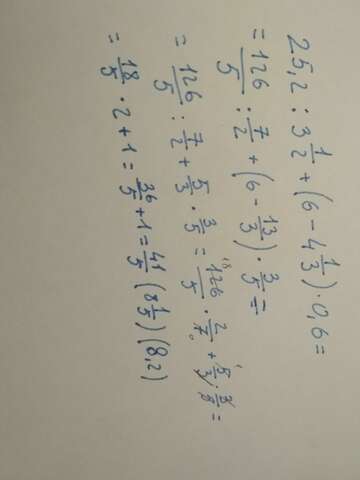 25,2 : 3 1/2 + (6 - 4 1/3) · 0,6 =
= 126/5 : 7/2 + (6 - 13/3) · 3/5 =
= 126/5 : 7/2 + 5/3 · 3/5 = 126/5 · 2/7 + 5/3 · 3/5 =
= 18/5 · 2 + 1 = 36/5 + 1 = 41/5 (8 1/5) (8,2)